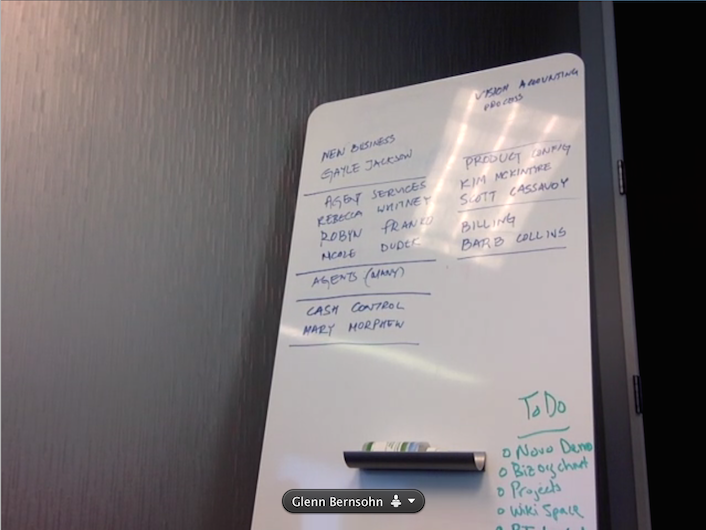 VISION ACCOUNTING
PROCESS
NEW BUSINESS
GAYLE JACKSON
AGENT SERVICES
REBECCA WHITNEY
ROBYN FRANKO
NICOLE DUDEK
AGENTS (MANY)
CASH CONTROL
MARY MORPHEW
PRODUCT CONFIG
KIM MCKINTYRE
SCOTT CASSAVOY
BILLING
BARB COLLINS
ToDo
o Novo Demo
o Bizorgchart
o Projects
o Wiki Space
Glenn Bernsohn